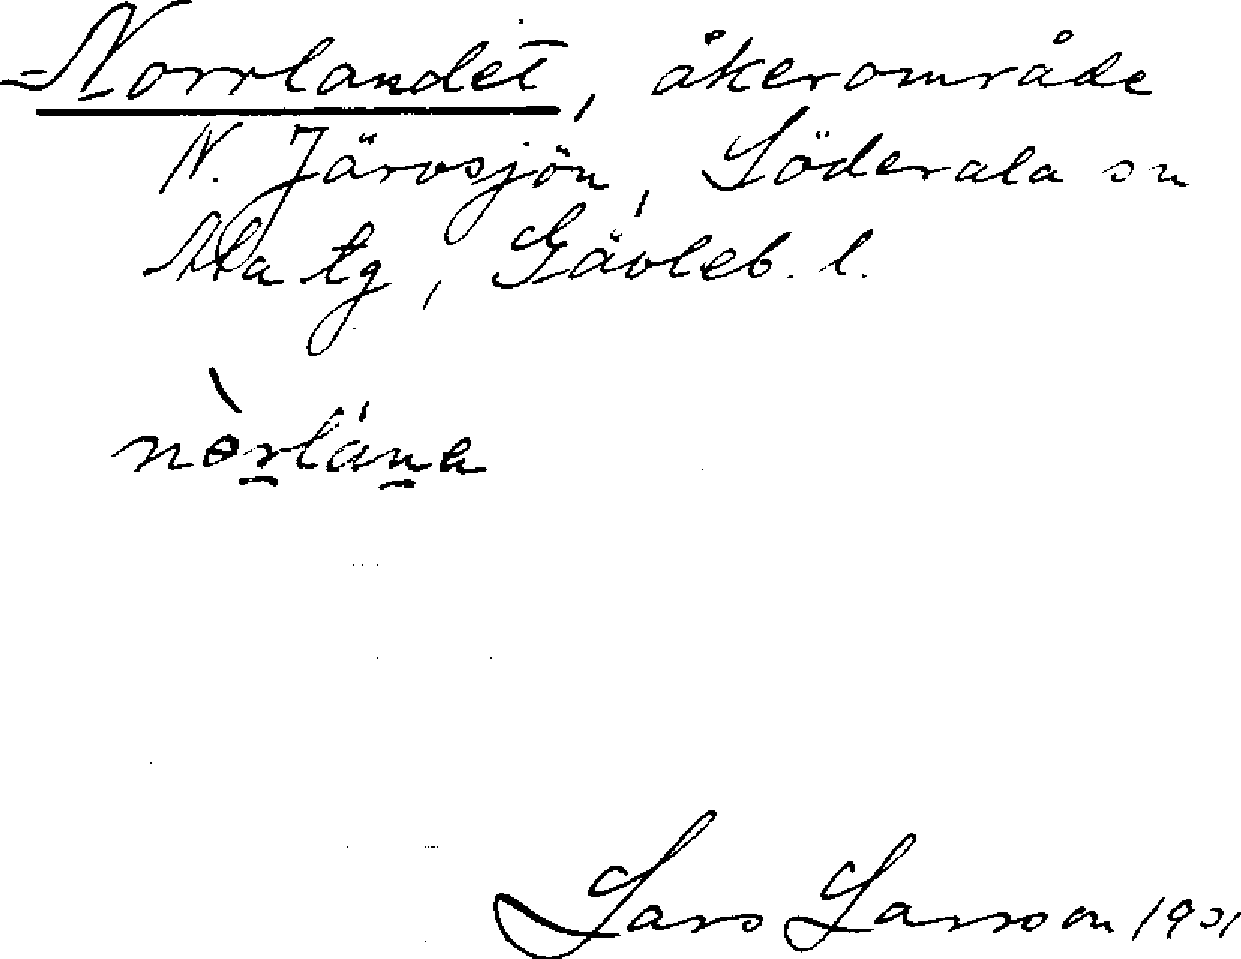 =Norrlandet, åkerområde
N. Järvsjön, Söderala sn
Ala tg, Gävleb. l.
nòrlána
Lars Larsson